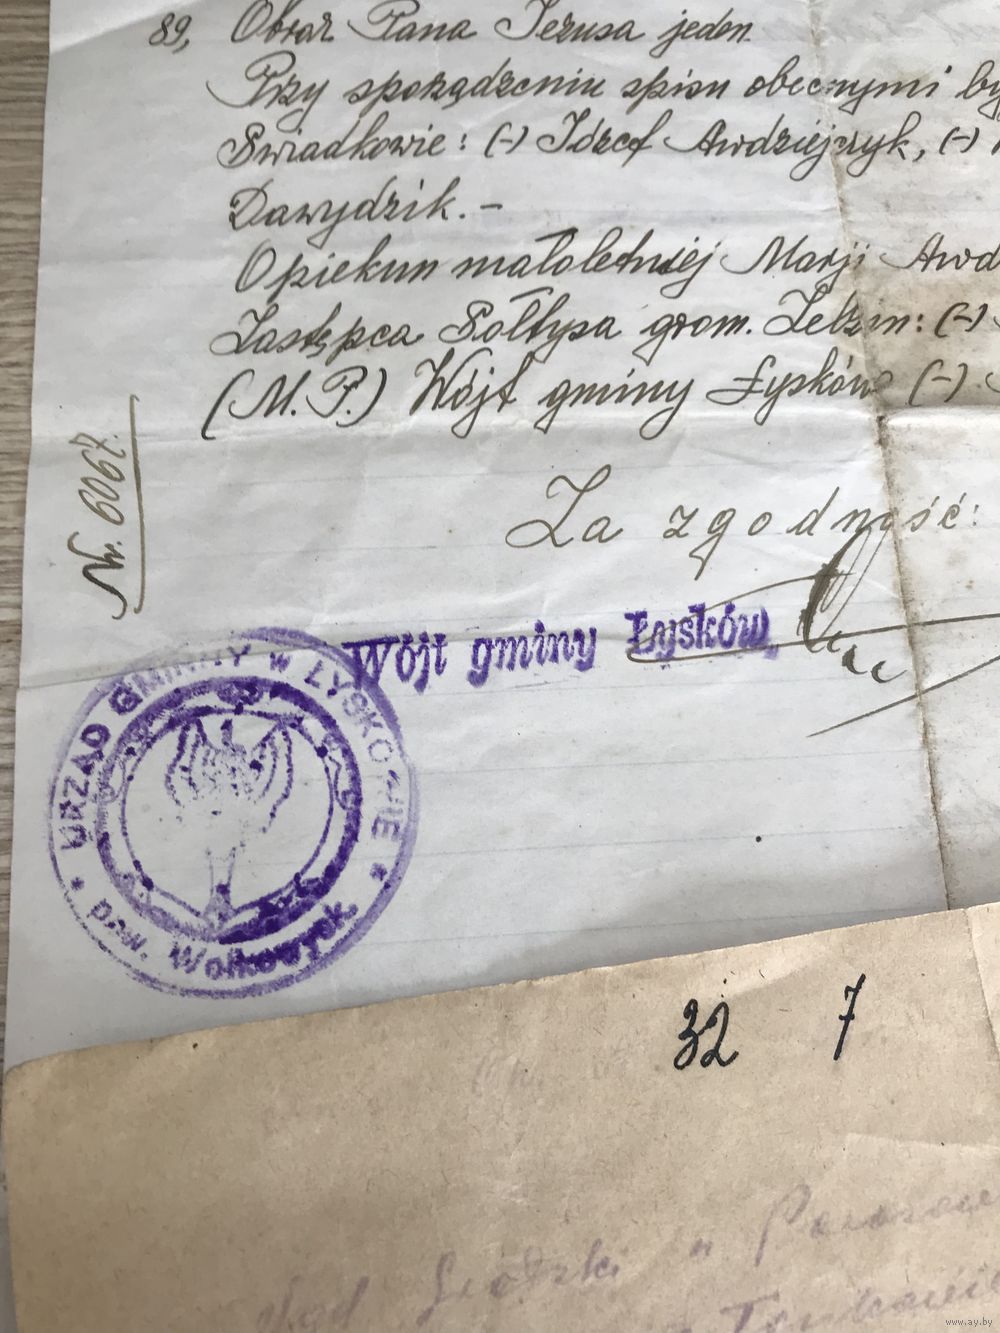 89, Obraz Pana Jezusa jeden.
Przy sporządzeniu spisu obecnymi by
Świadkowie: (-) Józef Awdziejczyk, (-)
Dawydzik. -
Opiekun małoletniej Marji Awd
Zastępca Sołtysa grom. Zelzin: (-)
(M. P.) Wójt gminy Łysków (-)
Nr. 6067.
Za zgodność:
Wójt gminy Łysków
URZĄD GMINNY w ŁYSKOWIE
* pow. Wołkowysk. *
32 7
Sąd Grodzki w
www.ay.by